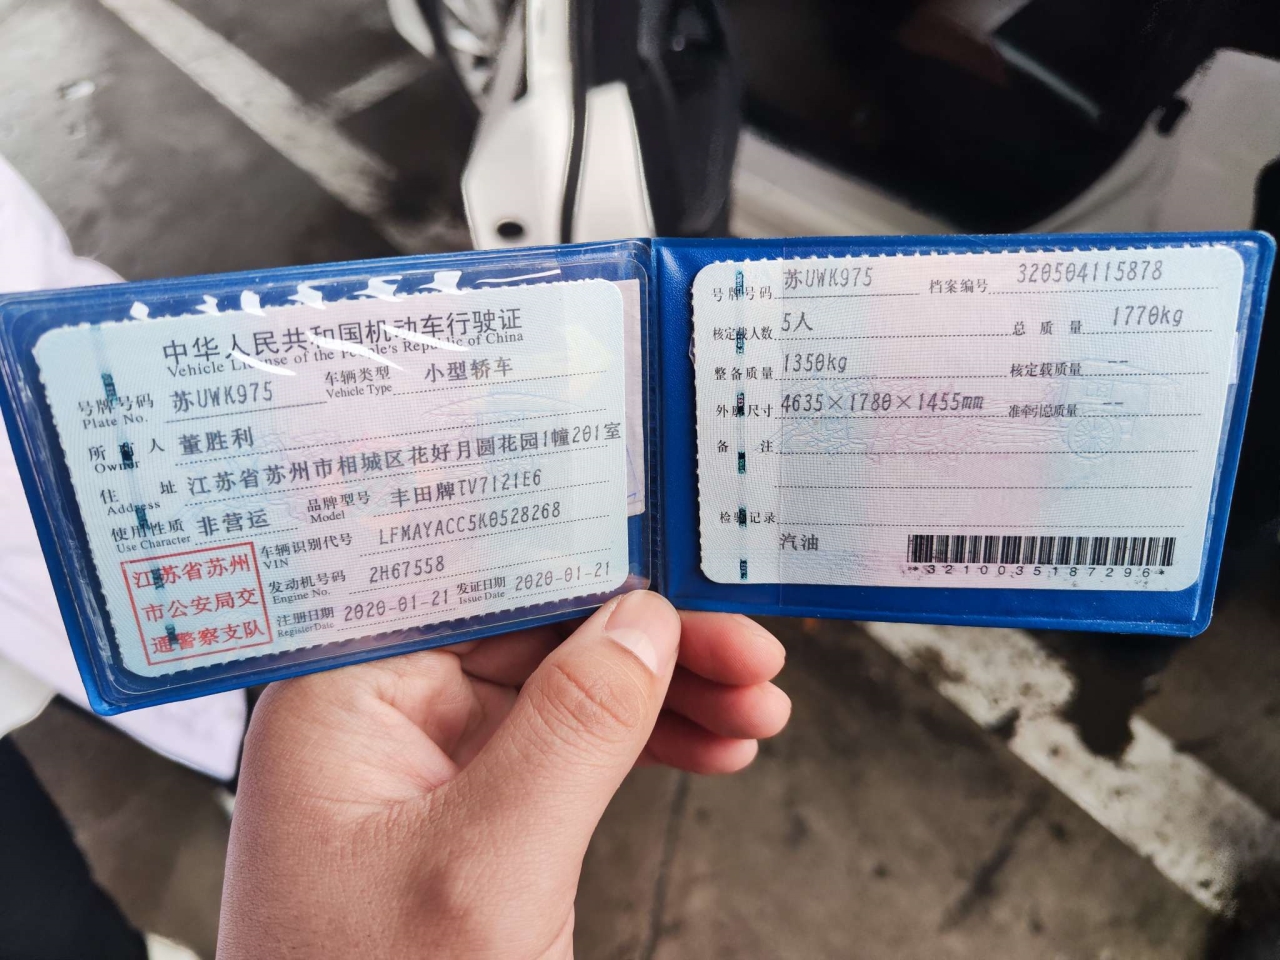 中华人民共和国机动车行驶证
Vehicle License of the People's Republic of China
号牌号码 苏UWK975 车辆类型 小型轿车
Plate No. Vehicle Type
所有人 董胜利
Owner
住址 江苏省苏州市相城区花好月圆花园1幢201室
Address
使用性质 非营运 品牌型号 丰田牌TV7121E6
Use Character Model
江苏省苏州
市公安局交
通警察支队
车辆识别代号 LFMAYACC5K0528268
VIN
发动机号码 2H67558
Engine No.
注册日期 2020-01-21 发证日期 2020-01-21
Register Date Issue Date
号牌号码 苏UWK975 档案编号 320504115878
核定载人数 5人 总质量 1770kg
整备质量 1350kg 核定载质量 --
外廓尺寸 4635×1780×1455mm 准牵引总质量 --
备注
检验记录
汽油
*3210035187296*